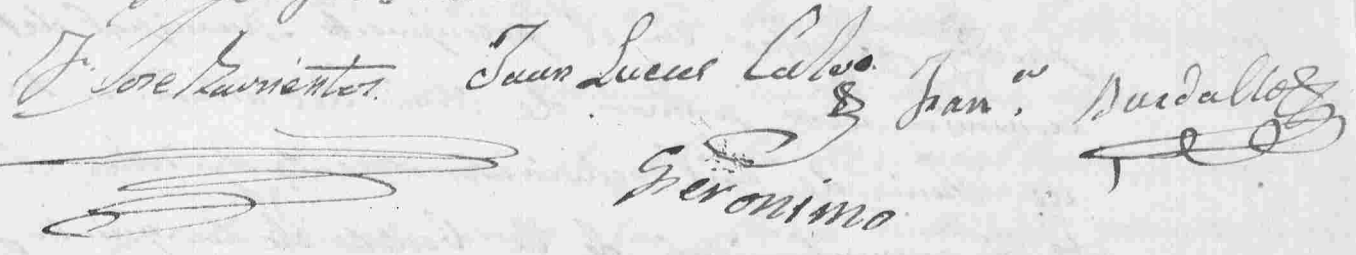 Fr. Jose Barrientos Juan Lucas Calvo Fran.co Bardallo
Geronimo